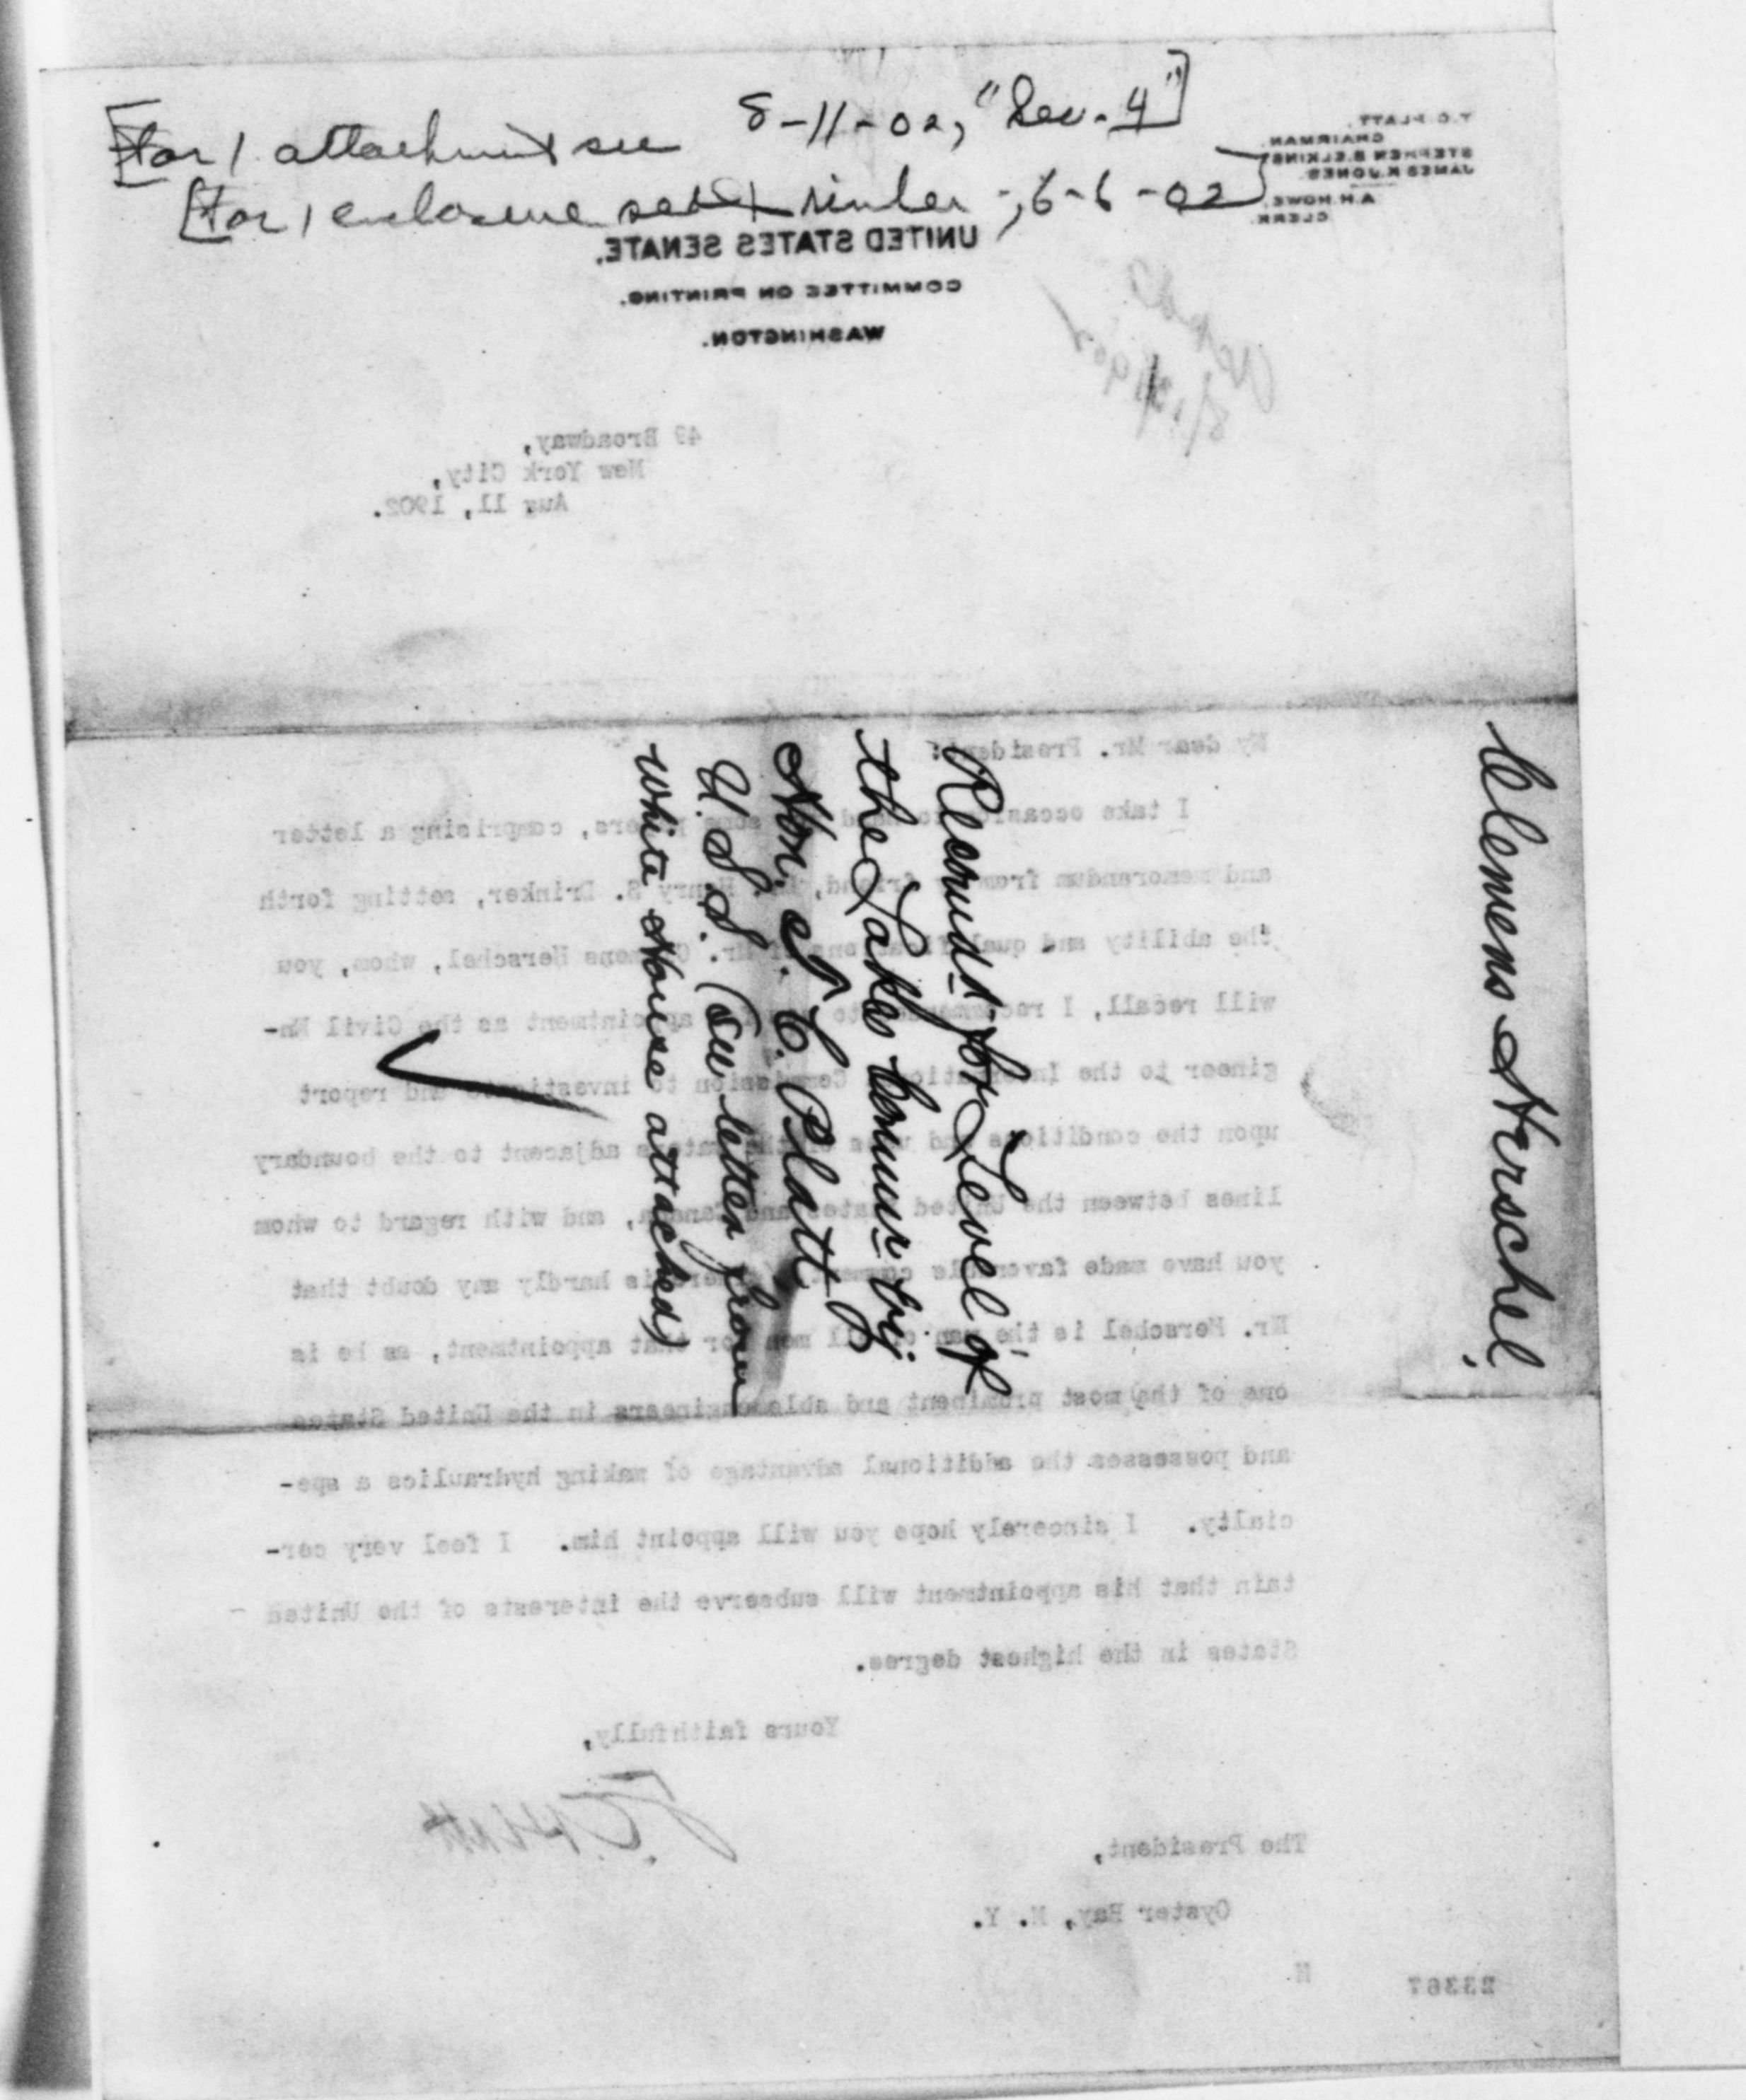 [For 1 attachment see 8-11-02, "Lev. 4"]
[For 1 enclosure see Drinker, 6-6-02]
T.C. PLATT,
CHAIRMAN.
STEPHEN B. ELKINS.
JAMES K. JONES.
A.H. HOWE,
CLERK.
UNITED STATES SENATE.
COMMITTEE ON PRINTING.
WASHINGTON.
49 Broadway,
New York City,
Aug 11, 1902.
My dear Mr. President:
I take occasion to some papers, comprising a letter
and memorandum from friend, Henry S. Drinker, setting forth
the ability and qualifications of Mr. Clemens Herschel, whom, you
will recall, I recommended to appointment as the Civil En-
gineer to the International Commission to investigate and report
upon the conditions and uses of the waters adjacent to the boundary
lines between the United States and Canada, and with regard to whom
you have made favorable comment. There is hardly any doubt that
Mr. Herschel is the man of all men for that appointment, as he is
one of the most prominent and able engineers in the United States
and possesses the additional advantage of making hydraulics a spe-
cialty. I sincerely hope you will appoint him. I feel very cer-
tain that his appointment will subserve the interests of the United
States in the highest degree.
Yours faithfully,
T.C. Platt
The President,
Oyster Bay, N. Y.
H
Clemens Herschel
Recomd-d for Level of
the Lakes Commn by
Hon. T. C. Platt
U. S. S. (See letter from
White House attached)